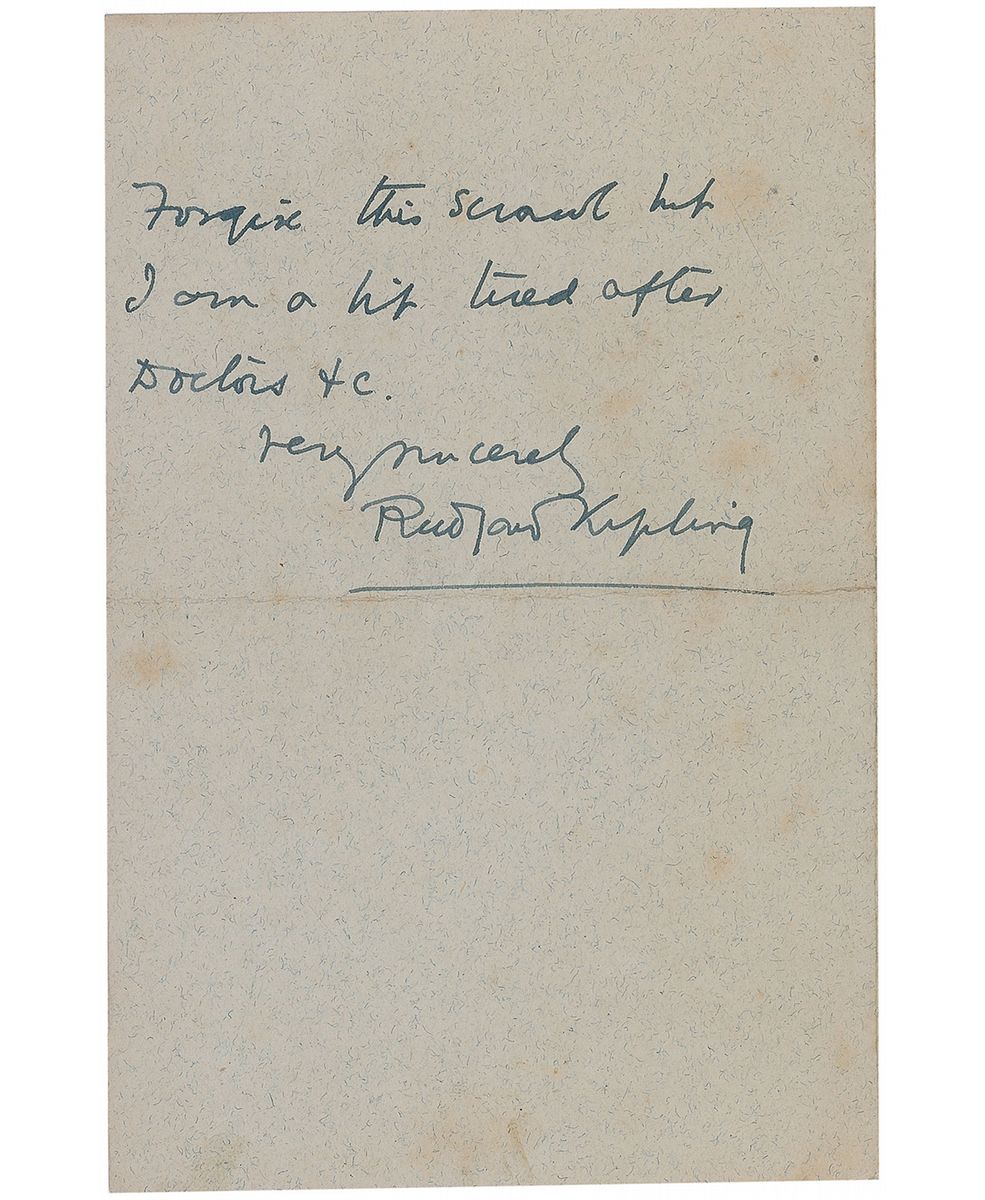 Forgive this scrawl but
I am a bit tired after
Doctors &c.
Very sincerely
Rudyard Kipling